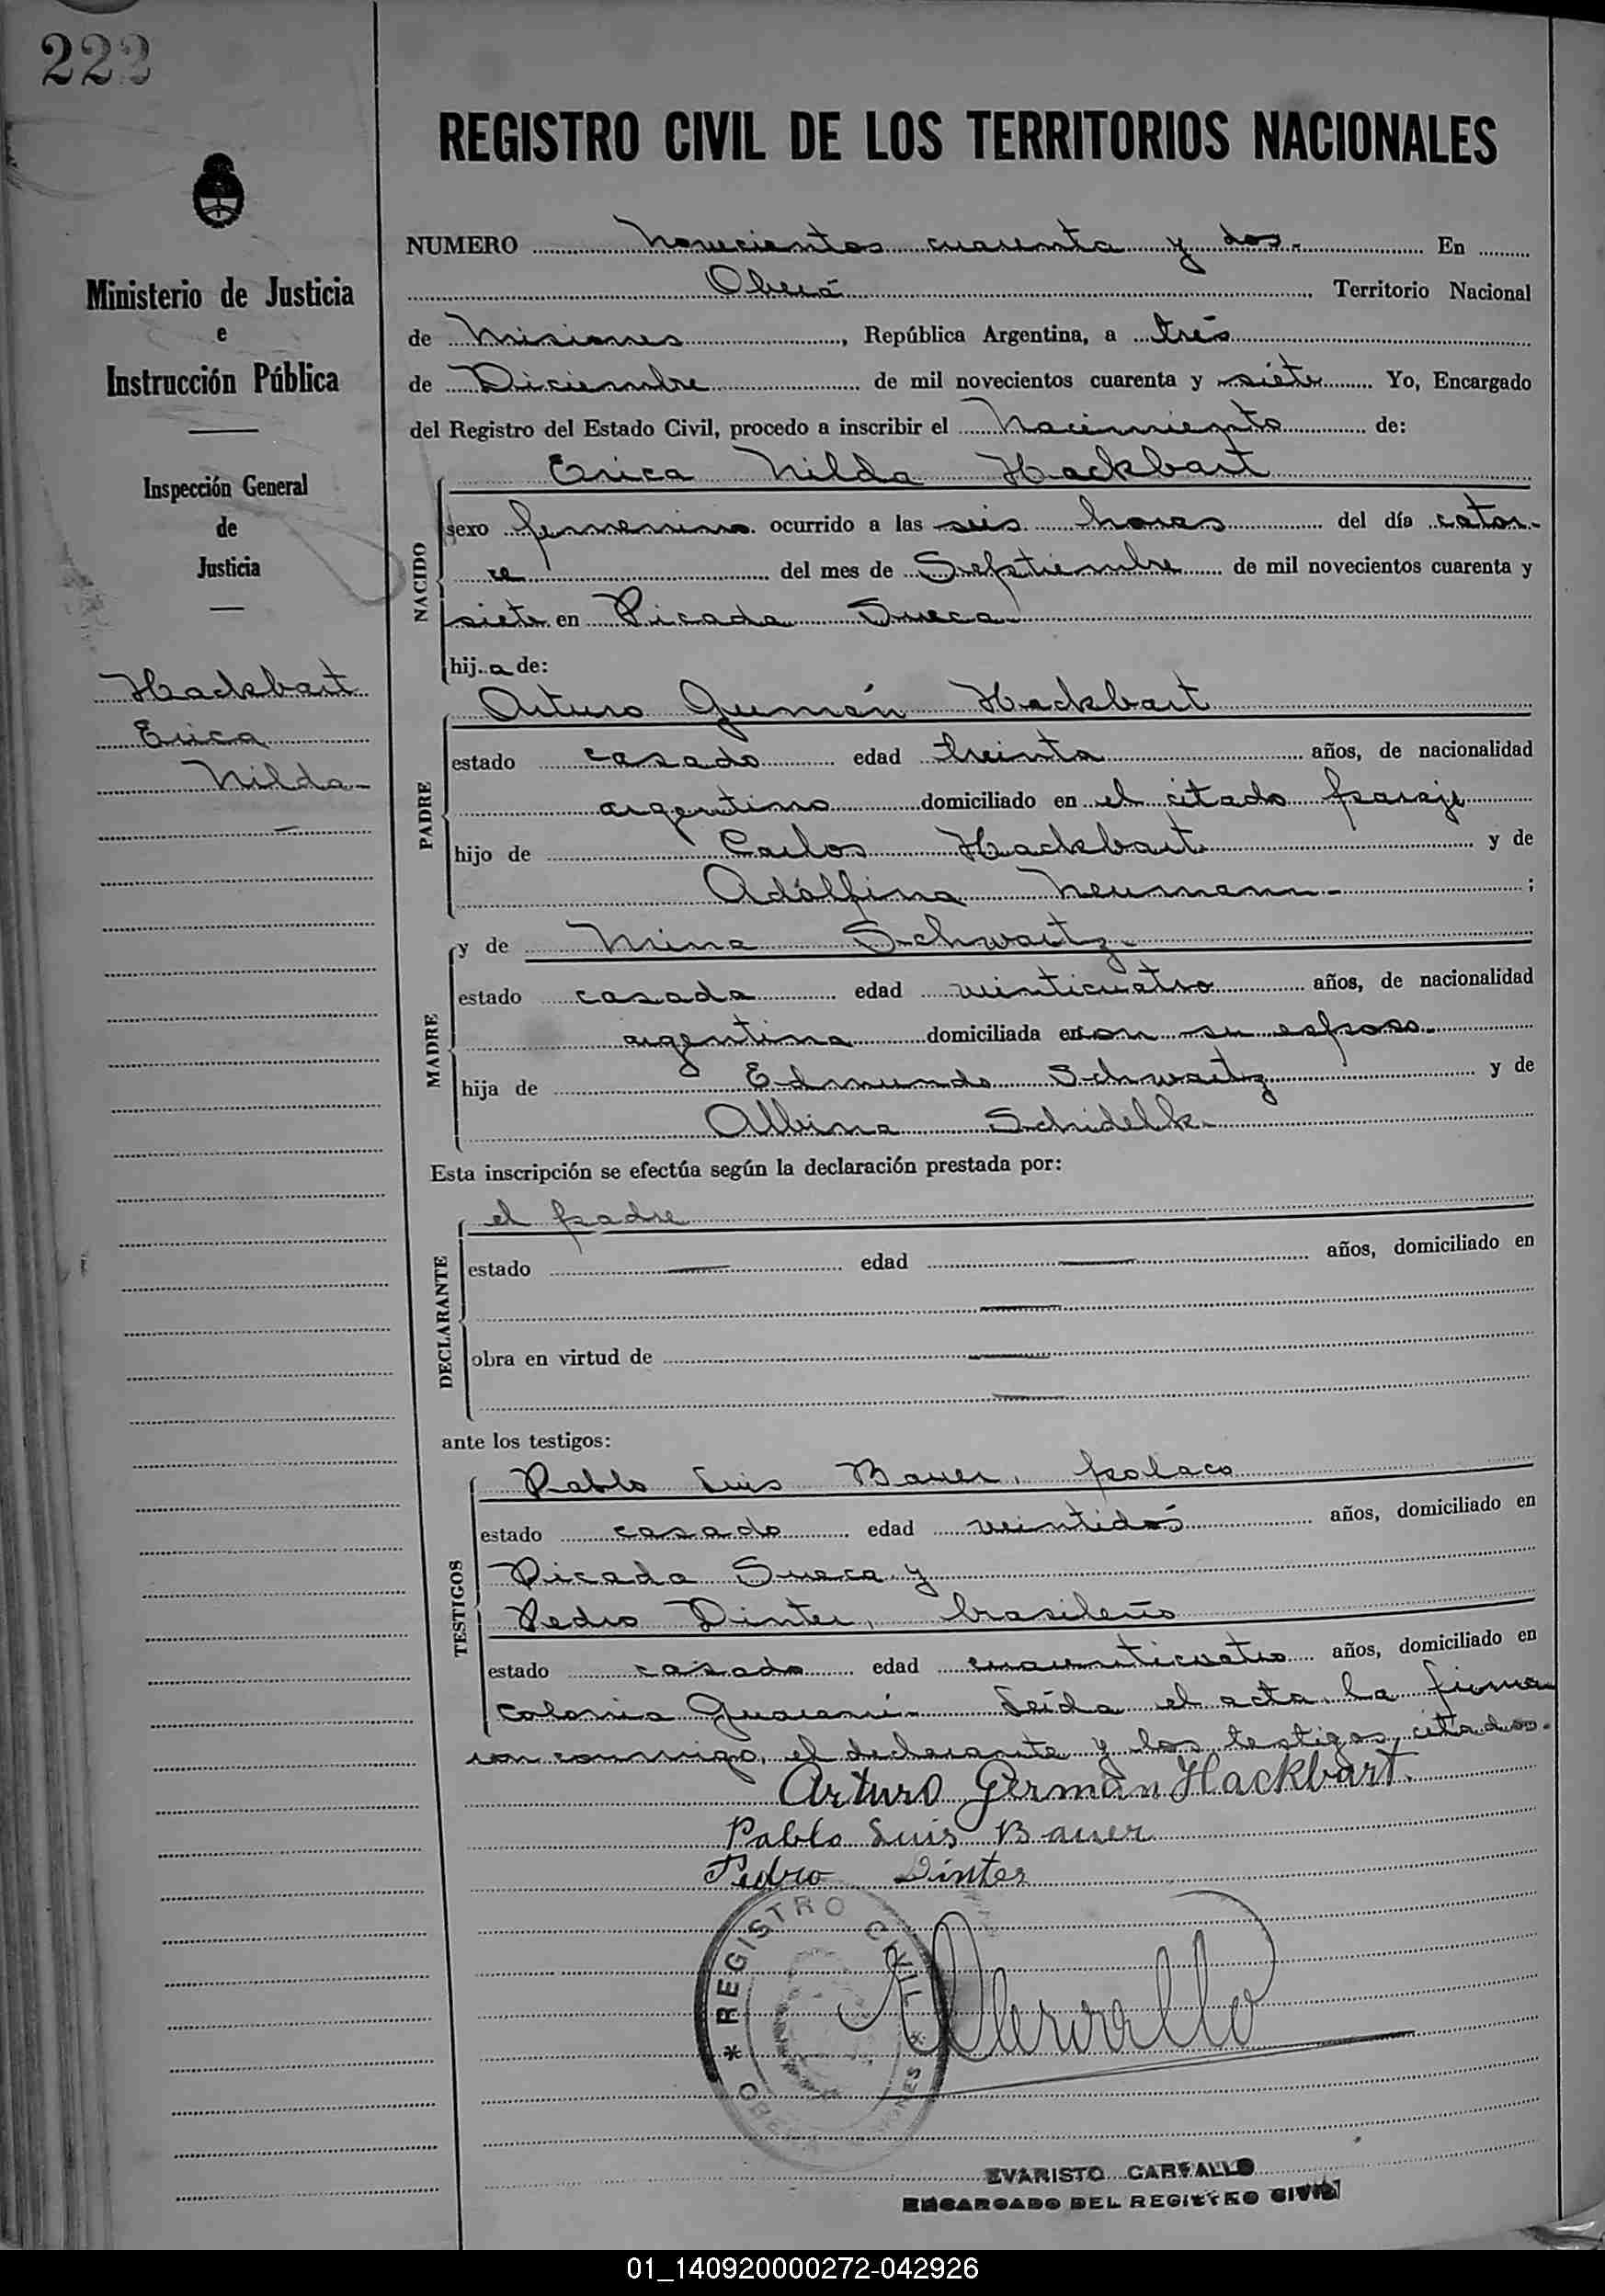 222
REGISTRO CIVIL DE LOS TERRITORIOS NACIONALES
Ministerio de Justicia
e
Instrucción Pública
Inspección General
de
Justicia
Hackbart
Erica
Nilda
NUMERO Novecientos cuarenta y dos. En
Oberá Territorio Nacional
de Misiones, República Argentina, a trés
de Diciembre de mil novecientos cuarenta y siete Yo, Encargado
del Registro del Estado Civil, procedo a inscribir el Nacimiento de:
NACIDO
Erica Nilda Hackbart
sexo femenino ocurrido a las seis horas del día cator-
ce del mes de Septiembre de mil novecientos cuarenta y
siete en Picada Sueca
hija de:
PADRE
Arturo Germán Hackbart
estado casado edad treinta años, de nacionalidad
argentino domiciliado en el citado paraje
hijo de Carlos Hackbart y de
Adólfina Neumann - ;
MADRE
y de Mina Schwartz
estado casada edad veinticuatro años, de nacionalidad
argentina domiciliada en con su esposo
hija de Edmundo Schwartz y de
Albina
Esta inscripción se efectúa según la declaración prestada por:
DECLARANTE
el padre
estado — edad — años, domiciliado en
—
obra en virtud de —
—
ante los testigos:
TESTIGOS
Pablo Luis Bauer, polaco
estado casado edad veintidós años, domiciliado en
Picada Sueca y
Pedro Dinter, brasileño
estado casado edad cuarenticuatro años, domiciliado en
Colonia Guaraní - Leída el acta la firman
con conmigo, el declarante y los testigos citados.
Arturo Germán Hackbart.
Pablo Luis Bauer
Pedro Dinter
* REGISTRO CIVIL *
OBERÁ MISIONES
EVARISTO CARVALLO
ENCARGADO DEL REGISTRO CIVIL
01_140920000272-042926